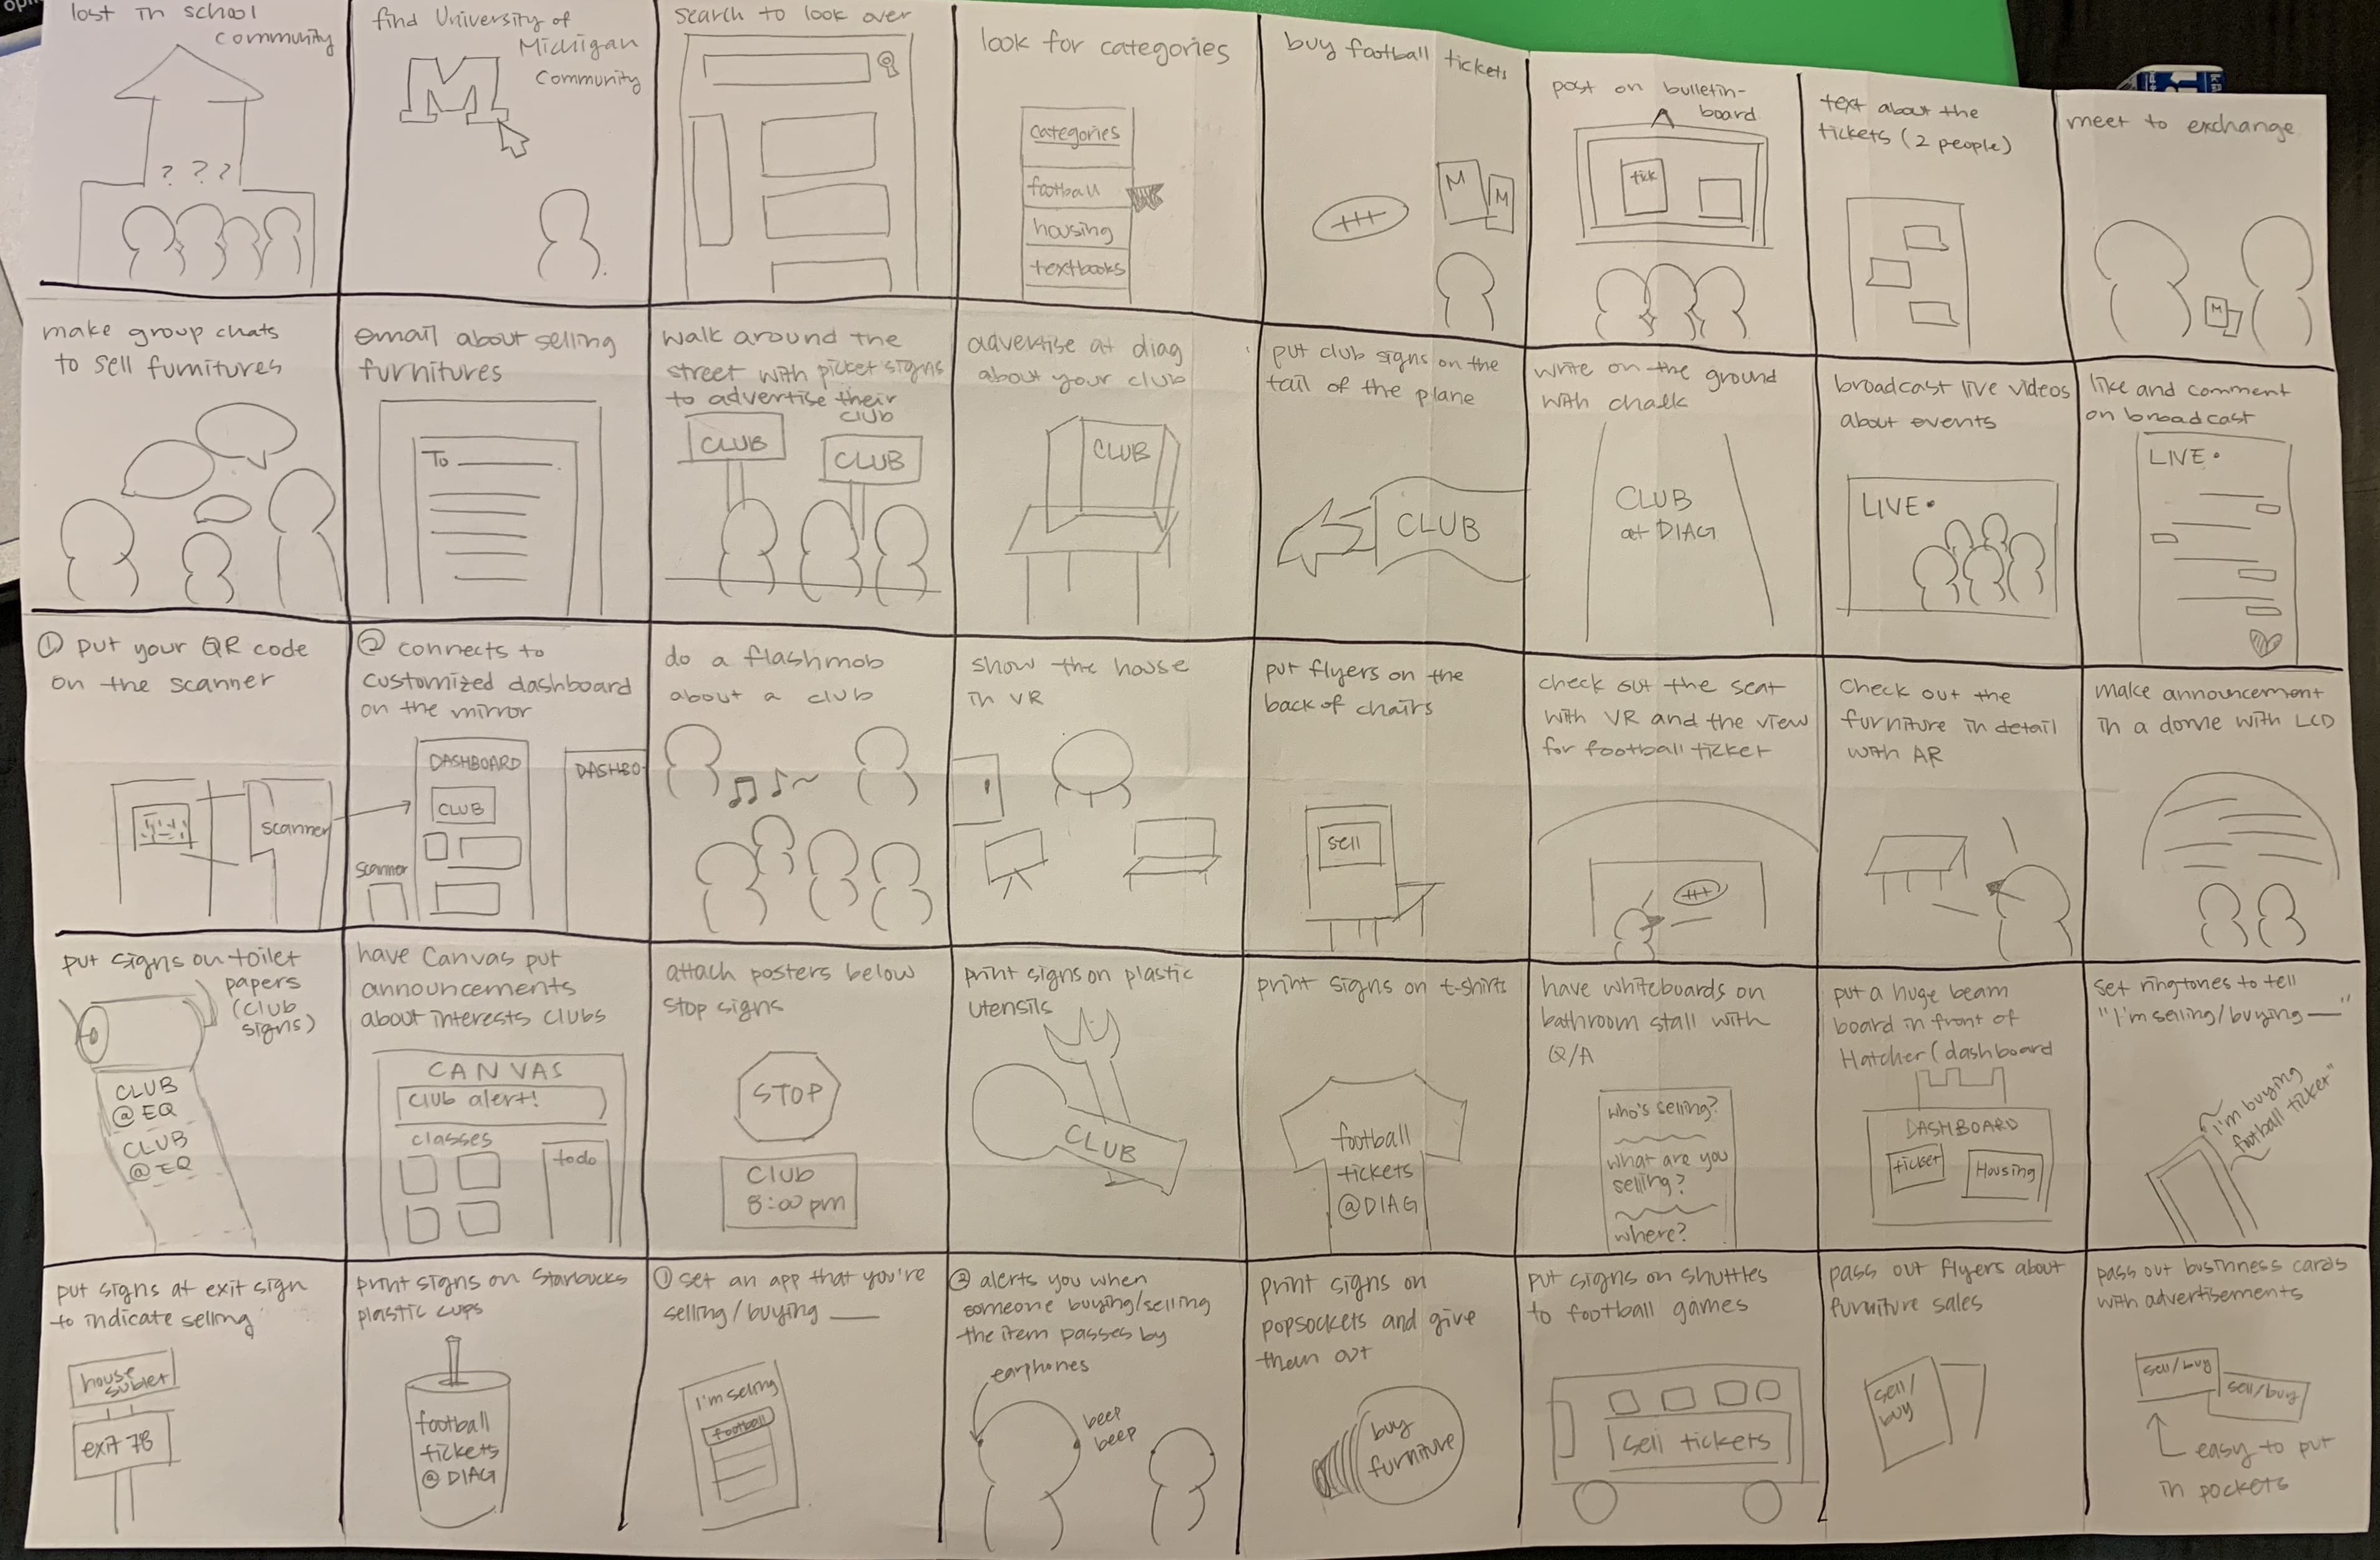 lost in school
community
? ? ?
find University of
Michigan
Community
M
search to look over
look for categories
categories
football
housing
textbooks
buy football tickets
M
M
post on bulletin-
board
tick
text about the
tickets (2 people)
meet to exchange
M
make group chats
to sell furnitures
email about selling
furnitures
To
walk around the
street with picket signs
to advertise their
club
CLUB
CLUB
advertise at diag
about your club
CLUB
put club signs on the
tail of the plane
CLUB
write on the ground
with chalk
CLUB
at DIAG
broadcast live videos
about events
LIVE
like and comment
on broadcast
LIVE
① put your QR code
on the scanner
scanner
② connects to
customized dashboard
on the mirror
DASHBOARD
CLUB
scanner
DASHBO
do a flashmob
about a club
show the house
in VR
put flyers on the
back of chairs
sell
check out the seat
with VR and the view
for football ticket
check out the
furniture in detail
with AR
make announcement
in a dome with LCD
put signs on toilet
papers
(club
signs)
CLUB
@EQ
CLUB
@EQ
have Canvas put
announcements
about interests clubs
CANVAS
club alert!
classes
todo
attach posters below
stop signs
STOP
CLUB
8:00 pm
print signs on plastic
utensils
CLUB
print signs on t-shirts
football
tickets
@DIAG
have whiteboards on
bathroom stall with
Q/A
who's selling?
what are you
selling?
where?
put a huge beam
board in front of
Hatcher (dashboard
DASHBOARD
ticket
Housing
set ringtones to tell
"I'm selling/buying —"
I'm buying
football ticket"
put signs at exit sign
to indicate selling
house
sublet
exit 7B
print signs on Starbucks
plastic cups
football
tickets
@ DIAG
① set an app that you're
selling/buying __
I'm seling
football
② alerts you when
someone buying/selling
the item passes by
earphones
beep
beep
print signs on
popsockets and give
them out
buy
furniture
put signs on shuttles
to football games
sell tickets
pass out flyers about
furniture sales
sell/
buy
pass out businness cards
with advertisements
sell/buy
sell/buy
easy to put
in pockets